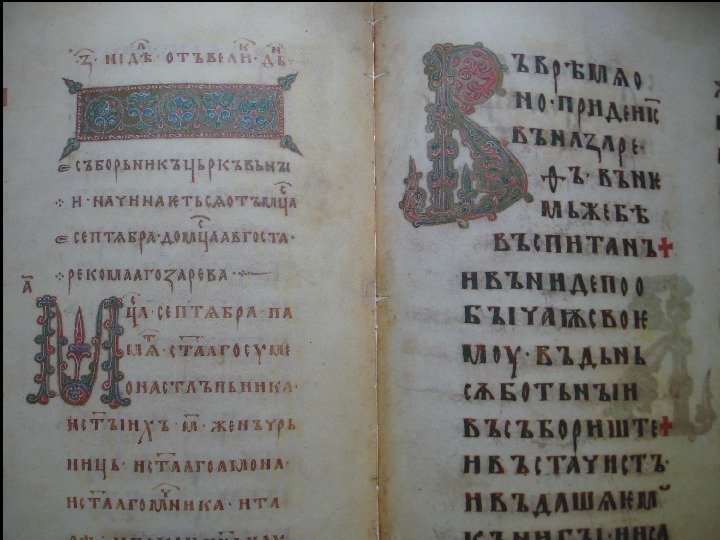 з҃ недѣⷧ҇ отъ великⷣн҇ьꙗ
съборьникъ цьркъвьнꙑ
и · начинаѥтьсѧ отъ мⷭ҇ца
септѧбра · до мⷭ҇ца авгоста ·
рекомааго зарева
а҃
Мⷭ҇ца · септѧбра · па
мѧⷮ҇ · ст҃ааго сѵме
она стлъпьника ·
и ст҃ꙑихъ · м҃ · женъ чрь
ниць · и ст҃ааго амона ·
и ст҃ааго мⷱ҇ника · и та
Въ врѣмѧ о
но · приде и҃с
въ назаре
ѳъ · въ нѥ
мьже бѣ
въспитанъ
и вьниде по о
бꙑчаю своѥ
моу · въ дьнь
сѫботьнꙑи
въ събориште
и въста чистъ ·
и въдашѧ ѥм
кънигꙑ · иса